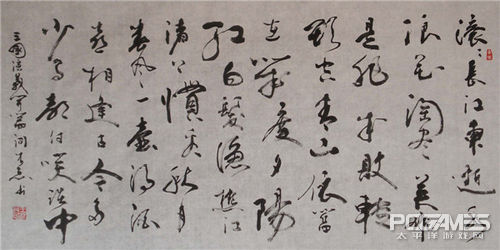 滚〻長江東逝水
浪花淘尽英雄
是非成敗轉
頭空青山依舊
在幾度夕陽
紅白髮漁樵江
渚上慣看秋月
春風一壺濁酒
喜相逢古今多
少事都付笑談中
三國演義開篇詞 书
PCGAMES
太平洋游戏网